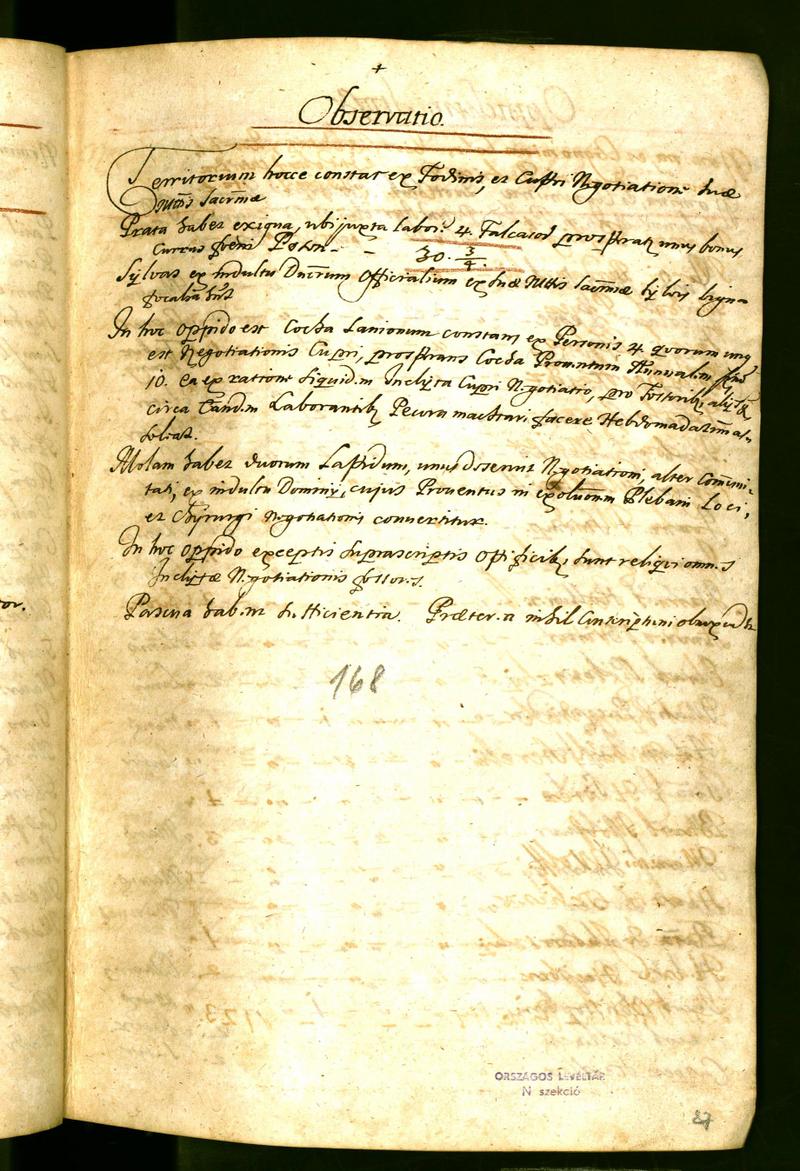 Observatio.
Territorium hocce constat ex Fodinis, et Cupri Negotiatione Suæ
Mttis Sacrmæ
Prata habet exigua, ubi juxta labor: 4. Falcasor prosperat, unus bonus
Currus fæni Poson - - 30. 3/4.
Sylvas ex indultu Dnorum Officialium ex Suæ Mttis Sacrmæ Sylvis ligna
focalia
In hoc oppido est Cocha Lanionum constans ex Personis 4 quorum unus
est Negotiationis Cupri, Cocha Proventum Annualem
10. ea ex ratione siquidem Inclyta Cupri Negotiatio, pro Fossoribus alijsq
circa Eandem Laborantibus Pecora mactari facere Hebdomadatim as-
soleat.
Molam habet duorum Lapidum, unus deservit Negotiationi, alter Commini-
tati, ex indultu Dominij, cujus Proventus in exolutionem Plebani Loci,
et Chyrurgi Negotiationis convertitur.
In hoc oppido exceptis suprascriptis opificibus, sunt reliqui omnes
Inclytæ Negotiationis fossores.
Pascua habent sufficientia. Præterea nihil Conscriptioni
168
ORSZÁGOS LEVÉLTÁR
N szekció
87